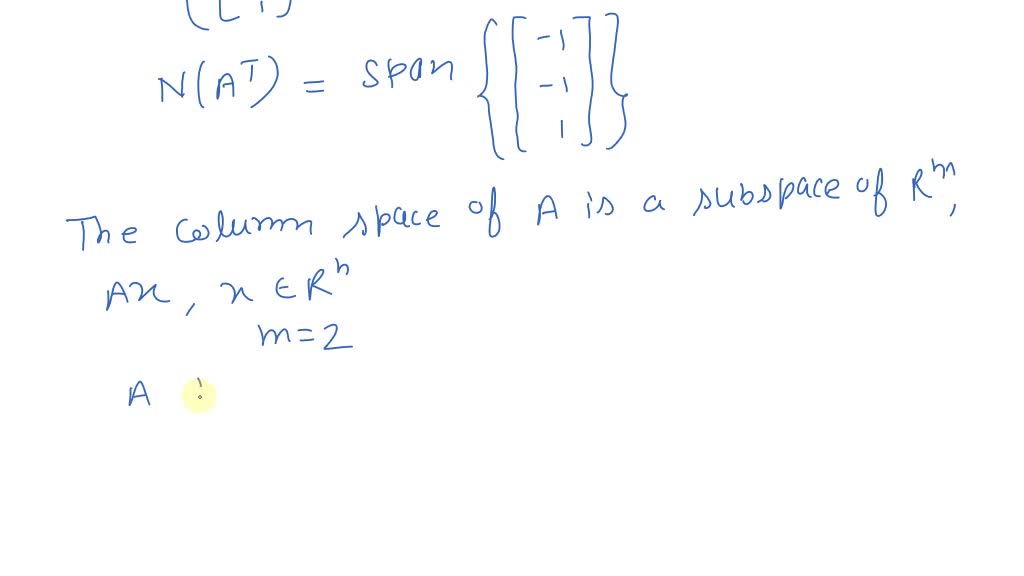 N(Aᵀ) = span {[-1 -1 1]}
The column space of A is a subspace of Rᵐ,
Ax, x ∈ Rⁿ
m=2
A